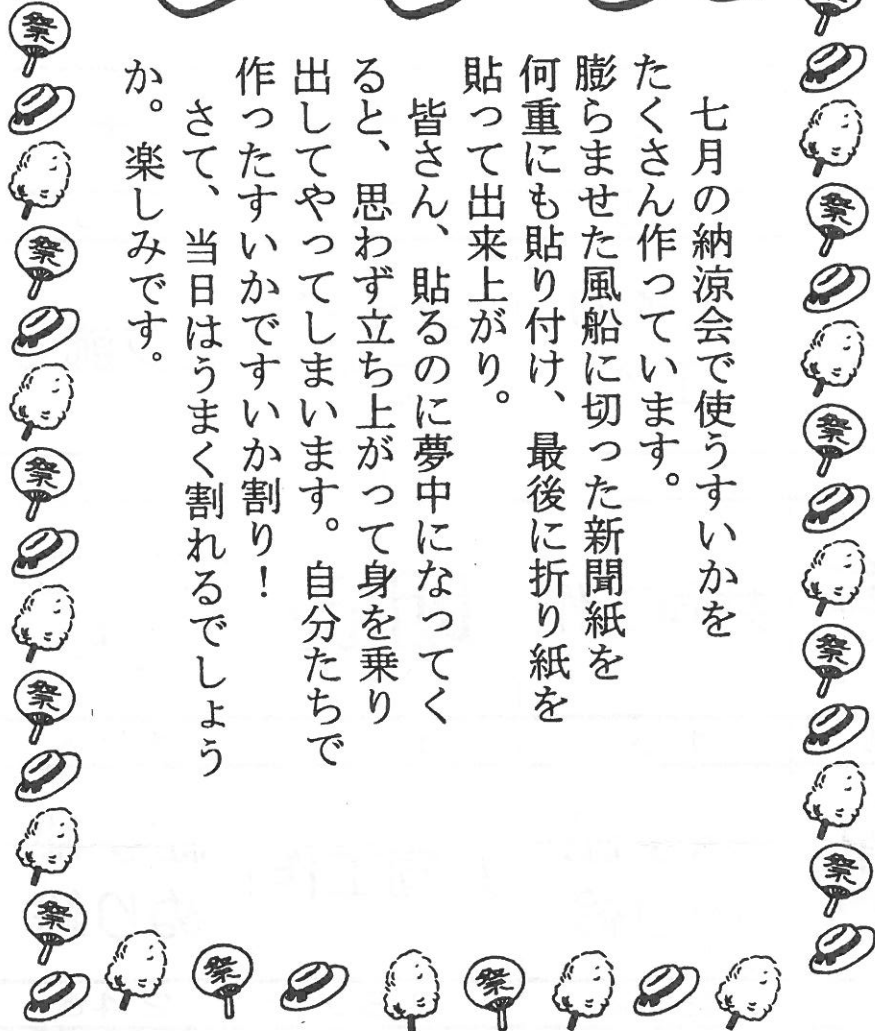 七月の納涼会で使うすいかを
たくさん作っています。
膨らませた風船に切った新聞紙を
何重にも貼り付け、最後に折り紙を
貼って出来上がり。
皆さん、貼るのに夢中になってく
ると、思わず立ち上がって身を乗り
出してやってしまいます。自分たちで
作ったすいかですいか割り！
さて、当日はうまく割れるでしょう
か。楽しみです。
祭
祭
祭
祭
祭
祭
祭
祭
祭
祭
祭